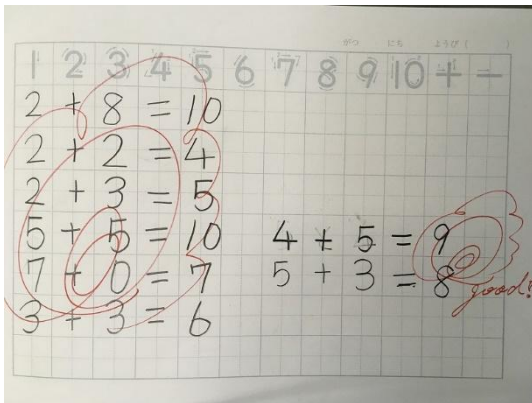 がつ にち ようび( )
1 2 3 4 5 6 7 8 9 10 + −
2 + 8 = 10
2 + 2 = 4
2 + 3 = 5
5 + 5 = 10
7 + 0 = 7
3 + 3 = 6
4 + 5 = 9
5 + 3 = 8
good!